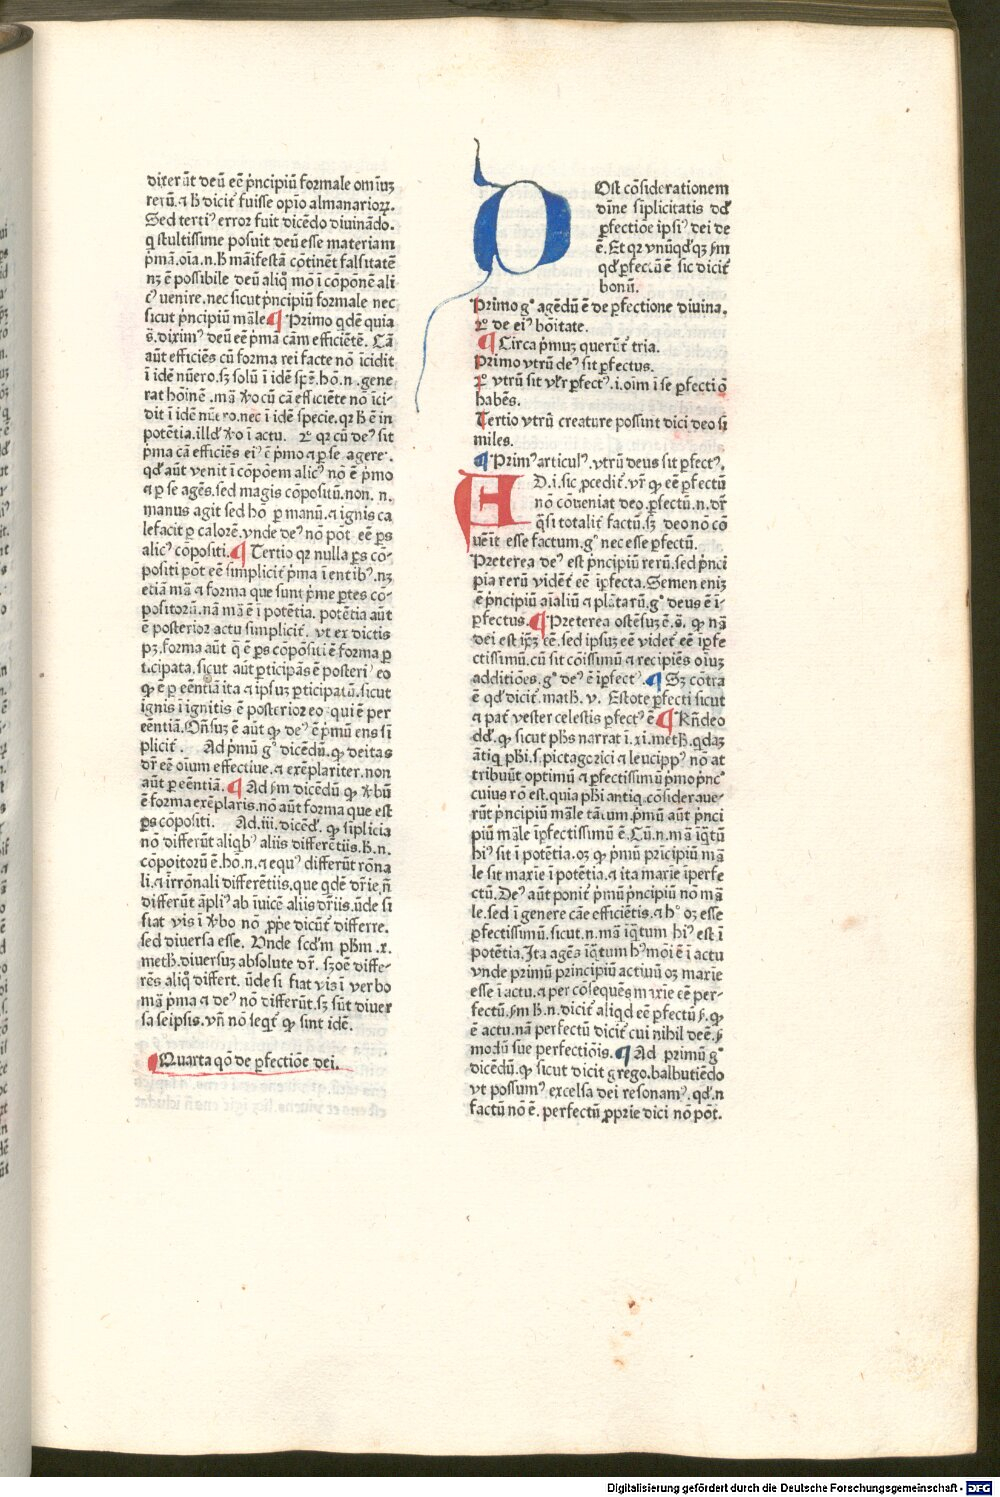 dixerūt deū eē p̄ncipiū formale omiuꝫ
rerū. ⁊ h̄ dicit᷑ fuisse opīo almanarioꝝ.
Sed terti⁹ error fuit dicēdo diuinādo.
q stultissime posuit deū esse materiam
p̄mā. oīa. n. h̄ māifestā cōtinēt falsitatē
nꝫ ē possibile deū aliq̄ mō ī cōpōnē ali
c⁹ uenire. nec sicut p̄ncipiū formale nec
sicut p̄ncipiū māle ¶ Primo qdē quia
s̄. dixim⁹ deū eē p̄ma cām efficiētē. Cā
aūt efficiēs cū forma rei facte nō īcidit
ī idē nūero. sꝫ solū ī idē spē. hō. n. gene
rat hoīnē. mā ꝟo cū cā efficiēte nō īci-
dit ī idē nūero. nec ī idē specie. qꝛ h̄ ē in
potētia. illd̓ ꝟo ī actu. 2⁰ qꝛ cū de⁹ sit
p̄ma cā efficiēs ei⁹ ē p̄mo ⁊ ꝑ se agere.
qd̓ aūt venit ī cōpōem alic⁹ nō ē p̄mo
⁊ ꝑ se agēs. sed magis cōpositū. non. n.
manus agit sed hō ꝑ manū. ⁊ ignis ca
lefacit ꝑ calorē. vnde de⁹ nō pōt eē ꝑs
alic⁹ cōpositi. ¶ Tertio qꝛ nulla ꝑs cō-
positi pōt eē simplicit᷑ p̄ma ī entib⁹. nꝫ
etiā mā ⁊ forma que sunt p̄me ꝑtes cō-
positorū. nā mā ē ī potētia. potētia aūt
ē posterior actu simplicit᷑. vt ex dictis
pꝫ. forma aūt q ē ꝑs cōpōsiti ē forma ꝑ
ticipata. sicut aūt ꝑticipās ē posteri⁹ eo
ꝙ ē ꝑ eēntiā ita ⁊ ipsuꝫ ꝑticipatū. sicut
ignis ī ignitis ē posterior eo qui ē per
eēntiā. Oñsuꝫ ē aūt ꝙ de⁹ ē p̄mū ens si
plicit᷑. Ad p̄mū g⁰ dicēdū. ꝙ deitas
dr̄ eē oīum effectiue. ⁊ exēplariter. non
aūt ꝑ eēntiā. ¶ Ad ẜm dicēdū ꝙ ꝟbū
ē forma exēplaris. nō aūt forma que est
ꝑs cōpositi. Ad. iii. dicēd̓. ꝙ siplicia
nō differūt aliqb⁹ aliis differētiis. h̄. n.
cōpoitorū ē. hō. n. ⁊ equ⁹ differūt rōna
li. ⁊ irrōnali differētiis. que qdē dr̄ie. n̄
differūt āpli⁹ ab iuicē aliis dr̄iis. ūde si
fiat vis ī ꝟbo nō ꝓpe dicūt᷑ differre.
sed diuersa esse. Vnde scd̓m phm̄. x.
meth̄. diuersuꝫ absolute dr̄. sꝫ oē diffe-
rēs aliq̄ differt. ūde si fiat vis ī verbo
mā p̄ma ⁊ de⁹ nō differūt. sꝫ sūt diuer
sa seipsis. vn̄ nō seqt᷑ ꝙ sint idē.
¶ Quarta qō de ꝑfectiōe dei.
Ost cōsiderationem
diīne siplicitatis dd̓
ꝑfectiōe ipsi⁹ dei de
ē. Et qꝛ vnūqd̓qꝫ ẜm
qd̓ ꝑfectū ē sic dicit᷑
bonū.
Primo g⁰ agēdū ē de ꝑfectione diuina.
2⁰ de ei⁹ bōitate.
¶ Circa p̄muꝫ querūt᷑ tria.
Primo vtrū de⁹ sit ꝑfectus.
2⁰ vtrū sit vlr̄ ꝑfect⁹. i. oīm ī se ꝑfectiō
habēs.
Tertio vtrū creature possint dici deo si
miles.
¶ Prim⁹ articul⁹. vtrū deus sit ꝑfect⁹.
AD. i. sic ꝓcedit᷑. vr̄ ꝙ eē ꝑfectū
nō cōueniat deo. ꝑfectū. n. dr̄
q̄si totalit᷑ factū. sꝫ deo nō cō
uēit esse factum. g⁰ nec esse ꝑfectū.
Preterea de⁹ est p̄ncipiū rerū. sed p̄nci
pia rerū vident᷑ eē īꝑfecta. Semen eniꝫ
ē p̄ncipiū aīaliū ⁊ plātarū. g⁰ deus ē i-
ꝑfectus. ¶ Preterea ostēsuꝫ ē. s̄. ꝙ nā
dei est ip̄ꝫ eē. sed ipsuꝫ eē videt᷑ eē iꝑfe
ctissimū. cū sit cōissimū ⁊ recipiēs oīuꝫ
additiōes. g⁰ de⁹ ē iꝑfect⁹. ¶ Sꝫ cōtra
ē qd̓ dicit᷑. math. v. Estote ꝑfecti sicut
⁊ pat᷑ vester celestis ꝑfect⁹ ē ¶ Rn̄deo
dd̓. ꝙ sicut ph̄s narrat ī. xi. meth̄. qdaꝫ
ātiq phi. s. pictagorici ⁊ leucipp⁹ nō at
tribuūt optimū ⁊ ꝑfectissimū p̄mo p̄nc⁰
cuius rō est. quia phī antiq. cōsideraue-
rūt p̄ncipiū māle tātum. p̄mū aūt p̄nci
piū māle iꝑfectissimū ē. Cū. n. mā iq̄tū
hi⁹ sit ī potētia. oꝫ ꝙ p̄mū prīcipiū mā
le sit maxīe ī potētia. ⁊ ita maxīe iperfe
ctū. De⁹ aūt ponit᷑ p̄mū p̄ncipiū nō mā
le. sed ī genere cāe efficiētis. ⁊ h⁰ oꝫ esse
ꝑfectissimū. sicut. n. mā iq̄tum hi⁹ est ī
potētia. Ita agēs iq̄tum h⁹mōi ē ī actu
vnde primū principiū actiuū oꝫ maxīe
esse ī actu. ⁊ per cōsequēs maxīe eē per-
fectū. ẜm h̄. n. dicit᷑ aliqd eē ꝑfectū ẜ. ꝙ
ē actu. nā perfectū dicit᷑ cui nihil deē. ẜ
modū sue perfectiōis. ¶ Ad primū g⁰
dicēdū. ꝙ sicut dicit grego. balbutiēdo
vt possum⁹ excelsa dei resonam⁹. qd̓. n
factū nō ē. perfectū ꝓprie dici nō pōt.
Digitalisierung gefördert durch die Deutsche Forschungsgemeinschaft - DFG